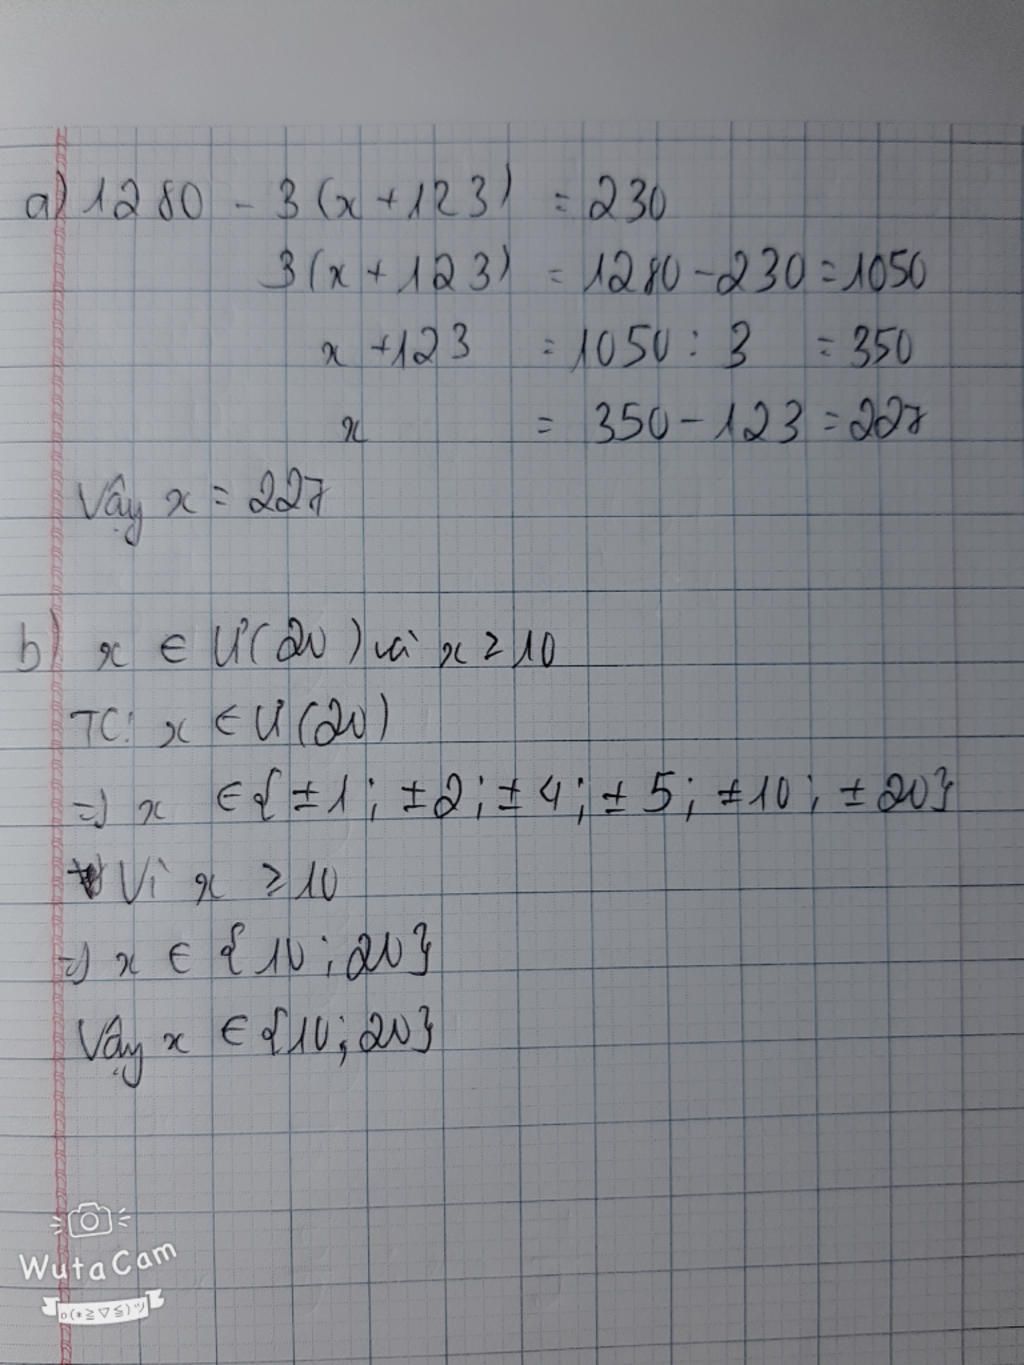 a) 1280 - 3(x + 123) = 230
3(x + 123) = 1280 - 230 = 1050
x + 123 = 1050 : 3 = 350
x = 350 - 123 = 227
Vậy x = 227
b) x ∈ Ư(20) và x ≥ 10
TC: x ∈ Ư(20)
=) x ∈ { ±1; ±2; ±4; ±5; ±10; ±20}
Vì x ≥ 10
=) x ∈ {10; 20}
Vậy x ∈ {10; 20}
WutaCam
o(*≧▽≦)ツ